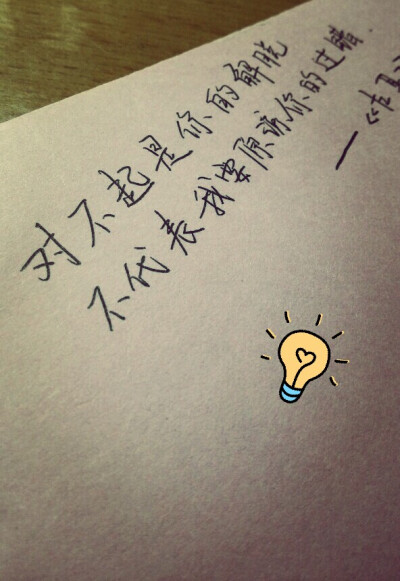 对不起是你的解脱
不代表我要原谅你的过错